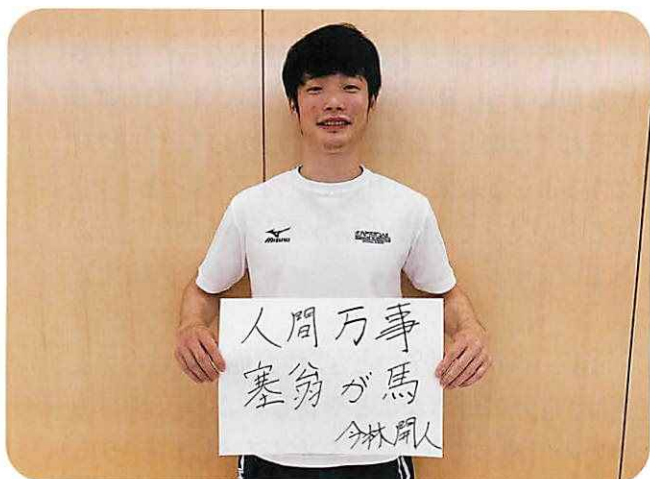 MIZUNO
人間万事
塞翁が馬
今林開人